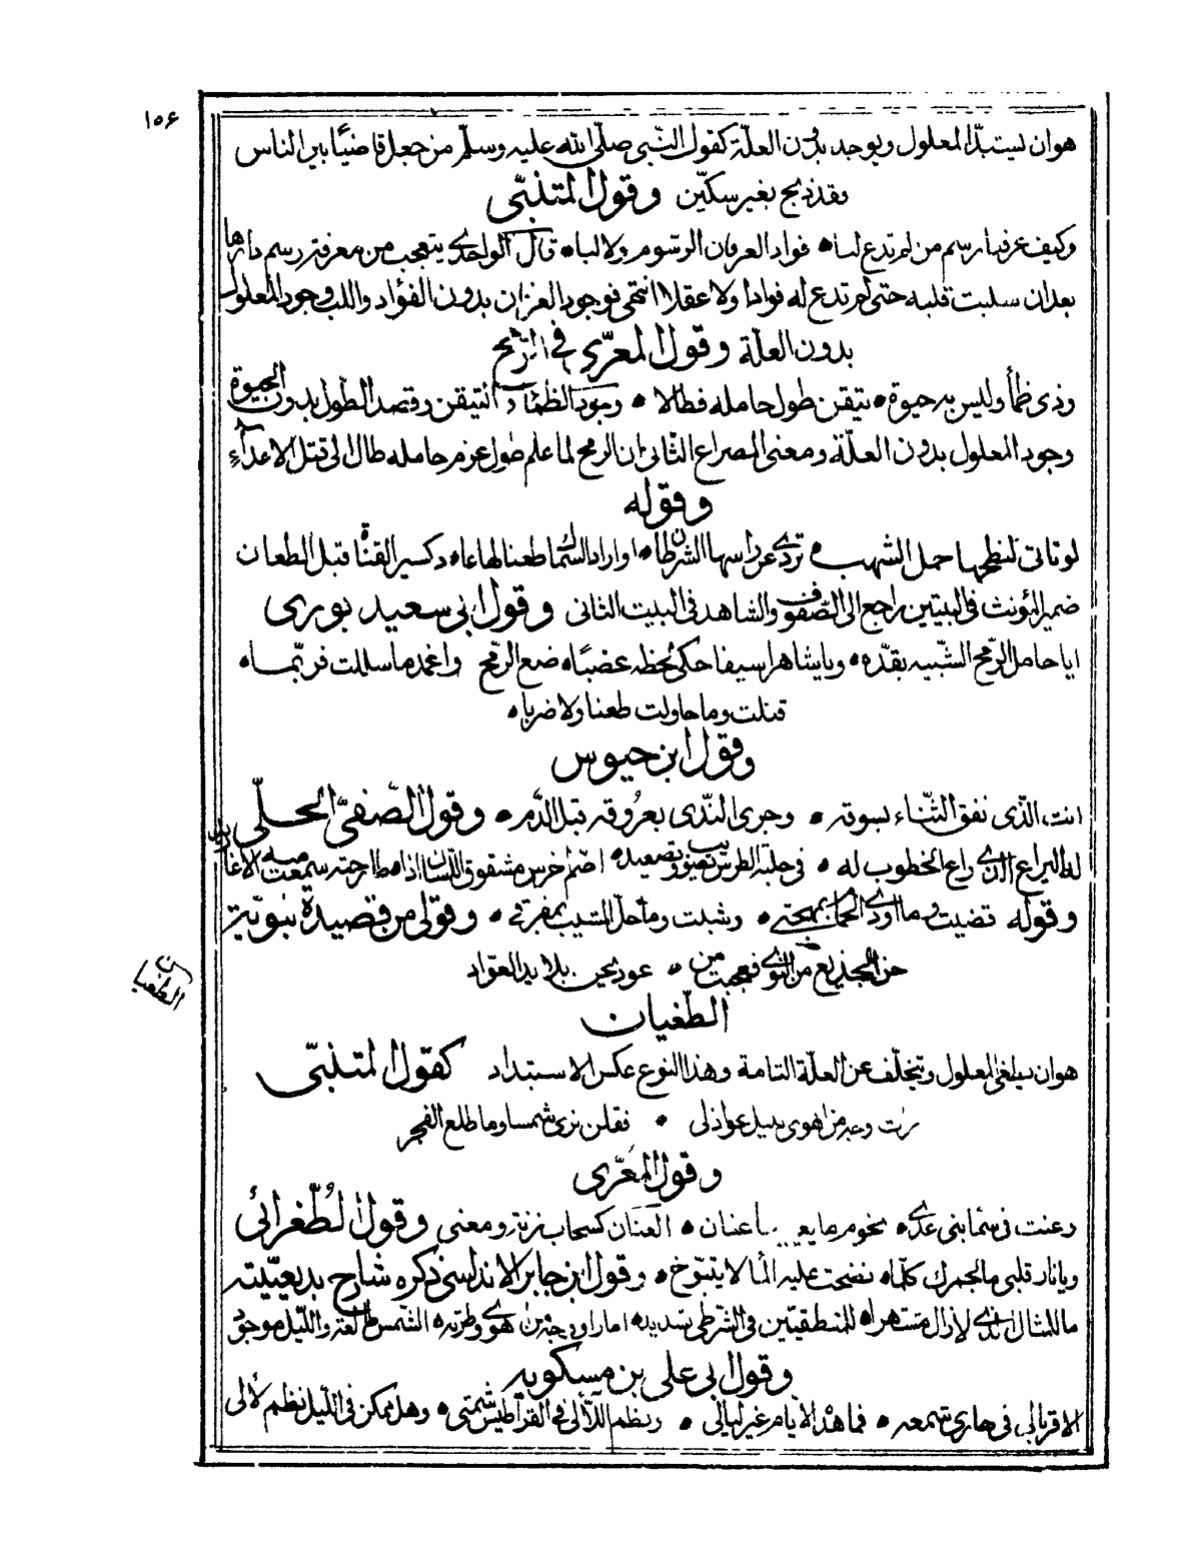 ١٥۶
هوان يستبدّ المعلول ويوجد بدون العلّة كقول النّبى صلّى الله عليه وسلّم من جعل قاضيًا بين الناس
فقد ذبح بغير سكّين وقول المتنبّى
وكيف عرفنا رسم من لم تدع لنا ٥ فواد العرفان الرسوم ولا لبا ٥ قال الواحدى يتعجب من معرفته رسم دارها
بعد ان سلبت قلبه حتى لم تدع له فوادا ولا عقلا انتهى فوجود العرفان بدون الفؤاد واللب وجود المعلول
بدون العلّة وقول المعرّى فى الرّمح
وذى ظمأ وليس به حيوة ٥ تيقن طول حامله فطالا ٥ وجود الظمأ و التيقن وقصد الطول بدون الحيوة
وجود المعلول بدون العلّة ومعنى المصراع الثّانى ان الرمح لما علم طول عزم حامله طال الى قتل الاعداءِ
وقوله
لو تاتى لنطحها حمل الشهب ٥ تردى عن راسها الشرطان ٥ او اراد السماك طعنا لها عاد ٥ كسير القناة قبل الطعان
ضمير المؤنث فى البيتين راجع الى الصّفوف والشاهد فى البيت الثانى وقول ابى سعيد بورى
ايا حامل الرّمح الشّبيه بقدّه ٥ ويا شاهرا سيفا حكى لحظه عضبًا ٥ ضع الرّمح واغمد ما سللت فربّما ٥
قتلت وما حاولت طعنا ولا ضربا ٥
وقول ابن حيوس
انت الّذى نفق الثّناء بسوقه ٥ وجرى النّدى بعروقه قبل الدّم ٥ وقول الصّفىّ الحلّى
له اليراع الذى راع الخطوب له ٥ فى حلبة الطرس تصويب وتصعيد ٥ اصم اخرس مشقوق اللسان اذا طارحته سمعت منه الاغاريد
وقوله قضيت وما اودى الحمام بمهجتى ٥ وشبت وما حلّ المشيب بمفرقى ٥ وقولى من قصيدة نبويّة
حن الجذيع من النوى فعجبت من ٥ عود يحن بلا يد العوّاد
الطغيان
الطّغيان
هوان يطغى المعلول ويتخلّف عن العلّة التامة وهذا النوع عكس الاستبداد كقول المتنبّى
رأت وجه من اهوى بليل عواذلى ٥ فقلن نرى شمسا وما طلع الفجر
وقول المعّرى
وعنت فى سما بنى عدى ٥ نجوم ما يعـ ـا عنان ٥ العنان كسحاب زنة ومعنى وقول الطّغرائى
ويا نار قلبى ما لجمرك كلّما ٥ نضحت عليه المآ لا يتبوّخ ٥ وقول ابن جابر الاندلسى ذكره شارح بديعيّته
ما للمثال الذى لازال مشتهرا ٥ للمنطقيّين فى الشّرطى تسديد ٥ اما راوا وجه من اهوى وطرّته ٥ الشّمس طالعة والليل موجود
وقول ابى على بن مسكويه
فما هذه الايام غير ليالى ٥ ونظم اللآلى فى القراطيس شيمتى ٥ وهل ممكن فى الليل نظم لآلى